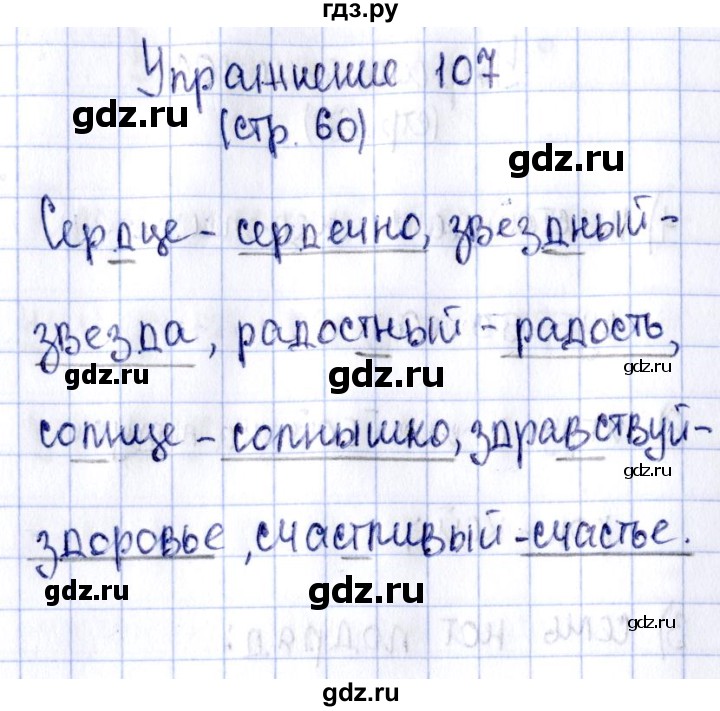 гдз.ру
Упражнение 107
gdz.ru
(стр. 60)
gdz.ru
Сердце - сердечно, звёздный -
звезда, радостный - радость,
gdz.ru
gdz.ru
gdz.ru
солнце - солнышко, здравствуй -
gdz.ru
gdz.ru
gdz.ru
здоровье, счастливый - счастье.
gdz.ru
gdz.ru
gdz.ru
gdz.ru